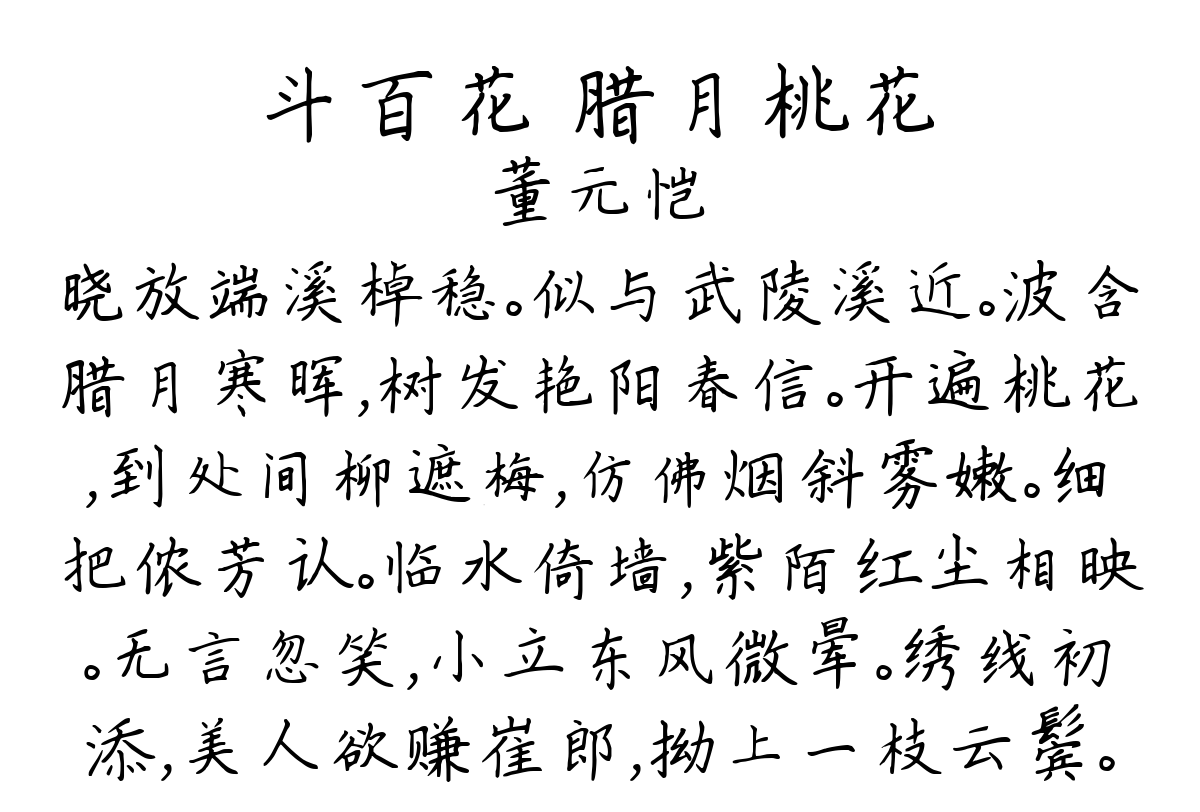 斗百花 腊月桃花
董元恺
晓放端溪棹稳。似与武陵溪近。波含
腊月寒晖,树发艳阳春信。开遍桃花
,到处间柳遮梅,仿佛烟斜雾嫩。细
把侬芳认。临水倚墙,紫陌红尘相映
。无言忽笑,小立东风微晕。绣线初
添,美人欲赚崔郎,拗上一枝云鬓。